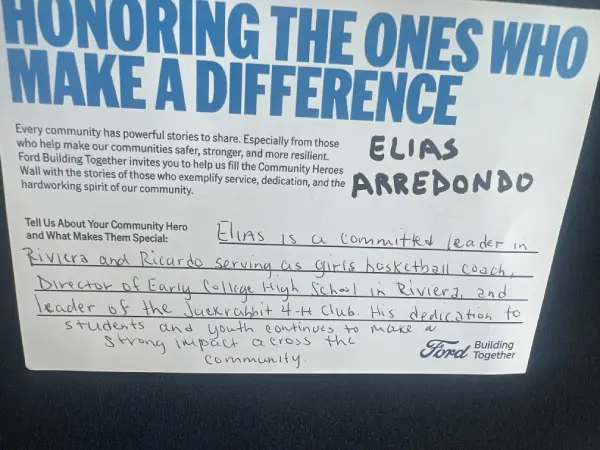 HONORING THE ONES WHO
MAKE A DIFFERENCE
Every community has powerful stories to share. Especially from those
who help make our communities safer, stronger, and more resilient.
Ford Building Together invites you to help us fill the Community Heroes
Wall with the stories of those who exemplify service, dedication, and the
hardworking spirit of our community.
ELIAS
ARREDONDO
Tell Us About Your Community Hero
and What Makes Them Special:
Elias is a committed leader in
Riviera and Ricardo serving as girls basketball coach,
Director of Early College High School in Riviera, and
leader of the Jackrabbit 4-H Club. His dedication to
students and youth continues to make a
strong impact across the
community.
Ford Building
Together